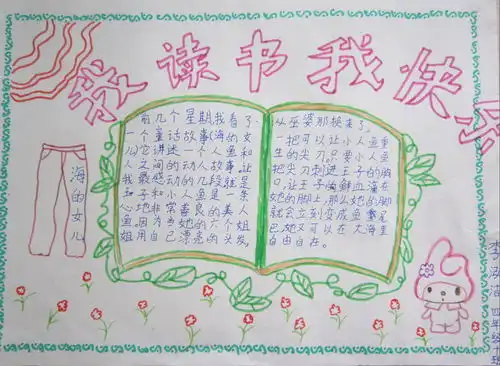 我读书我快乐
海的女儿
前几个星期,我看了
一个童话故事《海的女
儿》它讲述一个人鱼和
人之间的动人故事,让
我最感动的几段就是
王子和小人鱼是一条
心地非常善良的美人
鱼。因为当她的六个姐
姐用自己漂亮的头发,
从巫婆那换来了,
一把可以让小人鱼重
生的尖刀,只要小人鱼
把尖刀刺进王子的胸
口,让王子的鲜血滴在
她的脚上,那么她的脚
就会立刻变成鱼尾
巴,她又可以在大海里
自由自在。
四年级十班